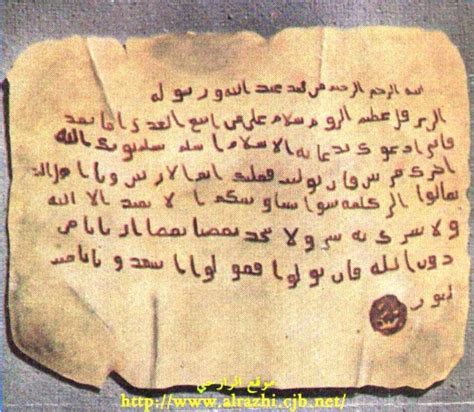 بسم الله الرحمن الرحيم من محمد عبد الله ورسوله
الى هرقل عظيم الروم سلام على من اتبع الهدى اما بعد
فانى ادعوك بدعاية الاسلام اسلم تسلم يوتك الله
اجرك مرتين فان توليت فعليك اثم الاريسيين ويا اهل الكتاب
تعالوا الى كلمة سوا بيننا وبينكم الا نعبد الا الله
ولا نشرك به شيا ولا يتخذ بعضنا بعضا اربابا من
دون الله فان تولوا فقولوا اشهدوا بانا مسلمون
موقع الرازي
http://www.alrazhi.cjb.net/